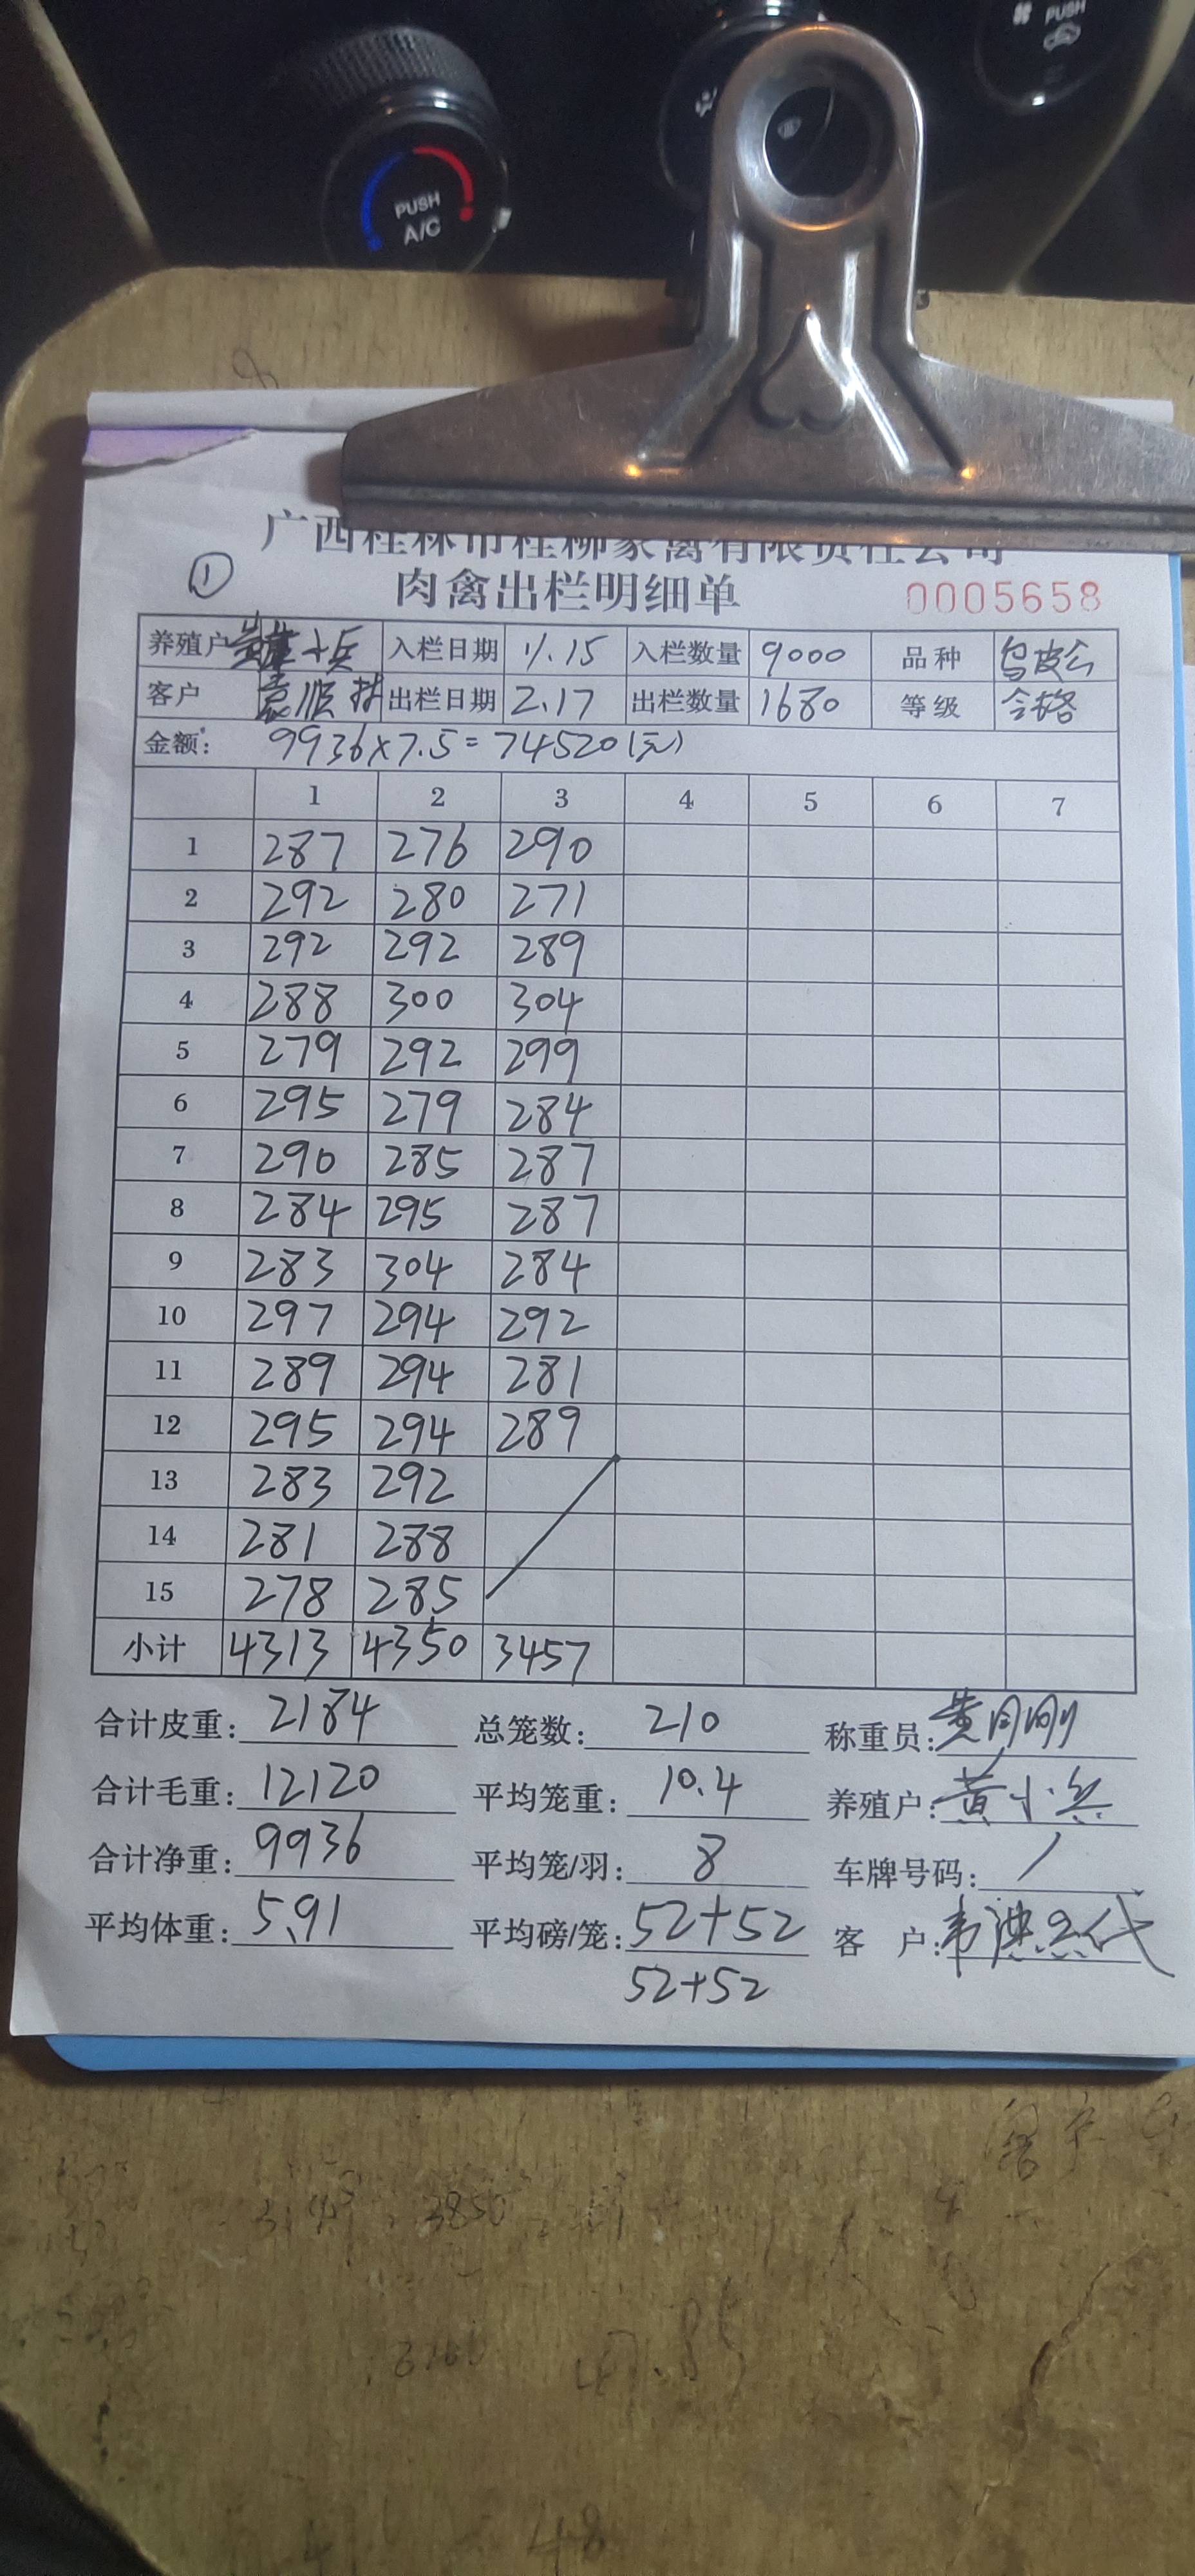 PUSH
PUSH
A/C
广西桂林市桂柳家禽有限责任公司
①
肉禽出栏明细单 0005658
养殖户 黄小兵 入栏日期 11.15 入栏数量 9000 品种 乌皮公
客户 袁顺 出栏日期 2.17 出栏数量 1680 等级 合格
金额: 9936×7.5=74520(元)
1 2 3 4 5 6 7
1 287 276 290
2 292 280 271
3 292 292 289
4 288 300 304
5 279 292 299
6 295 279 284
7 290 285 287
8 284 295 287
9 283 304 284
10 297 294 292
11 289 294 281
12 295 294 289
13 283 292
14 281 288
15 278 285
小计 4313 4350 3457
合计皮重: 2184 总笼数: 210 称重员: 黄月刚
合计毛重: 12120 平均笼重: 10.4 养殖户: 黄小兵
合计净重: 9936 平均笼/羽: 8 车牌号码: /
平均体重: 5.91 平均磅/笼: 52+52 客 户: 代
52+52